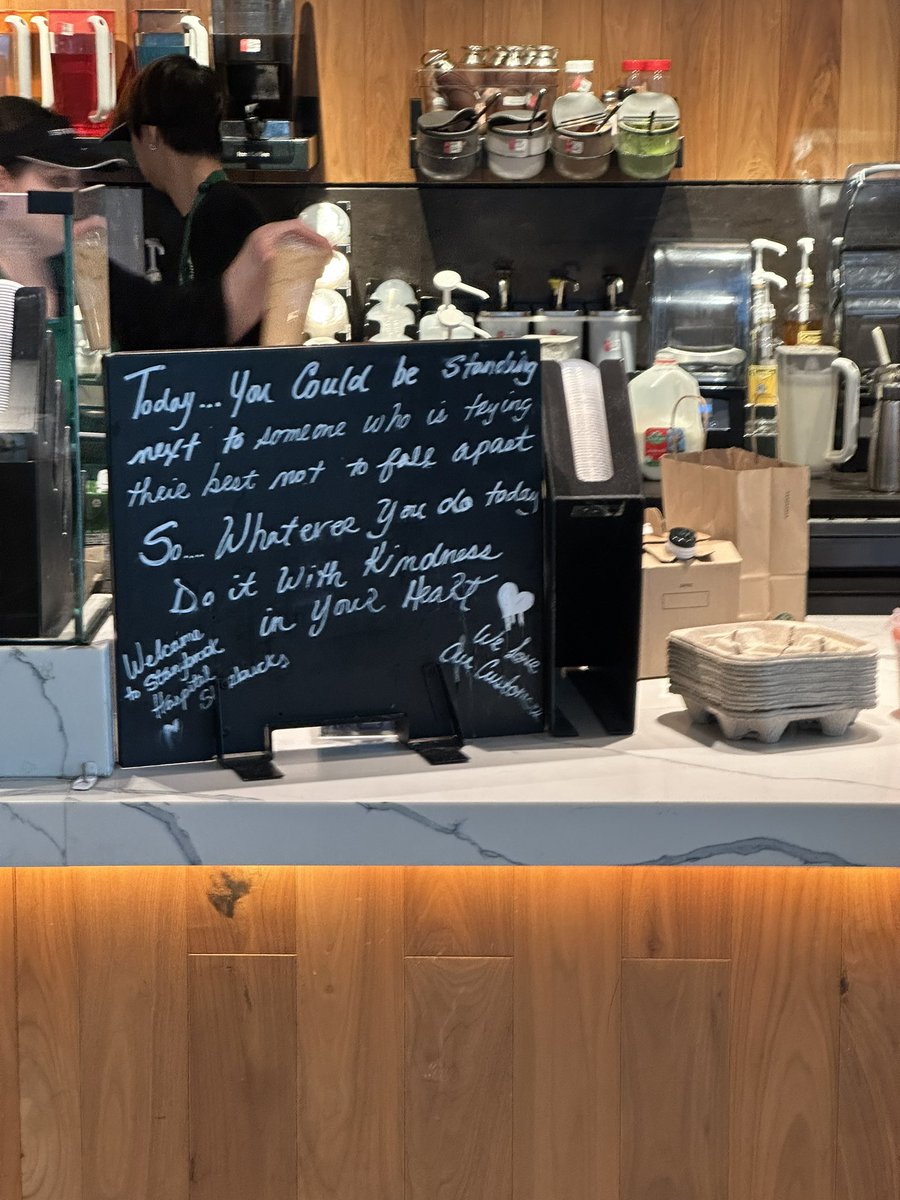 Today... You Could be standing
next to someone who is trying
their best not to fall apart
So.... Whatever You do today
Do it With Kindness
in Your Heart
Welcome
to Stonybrook
Hospital
Starbucks
We Love
Our Customers